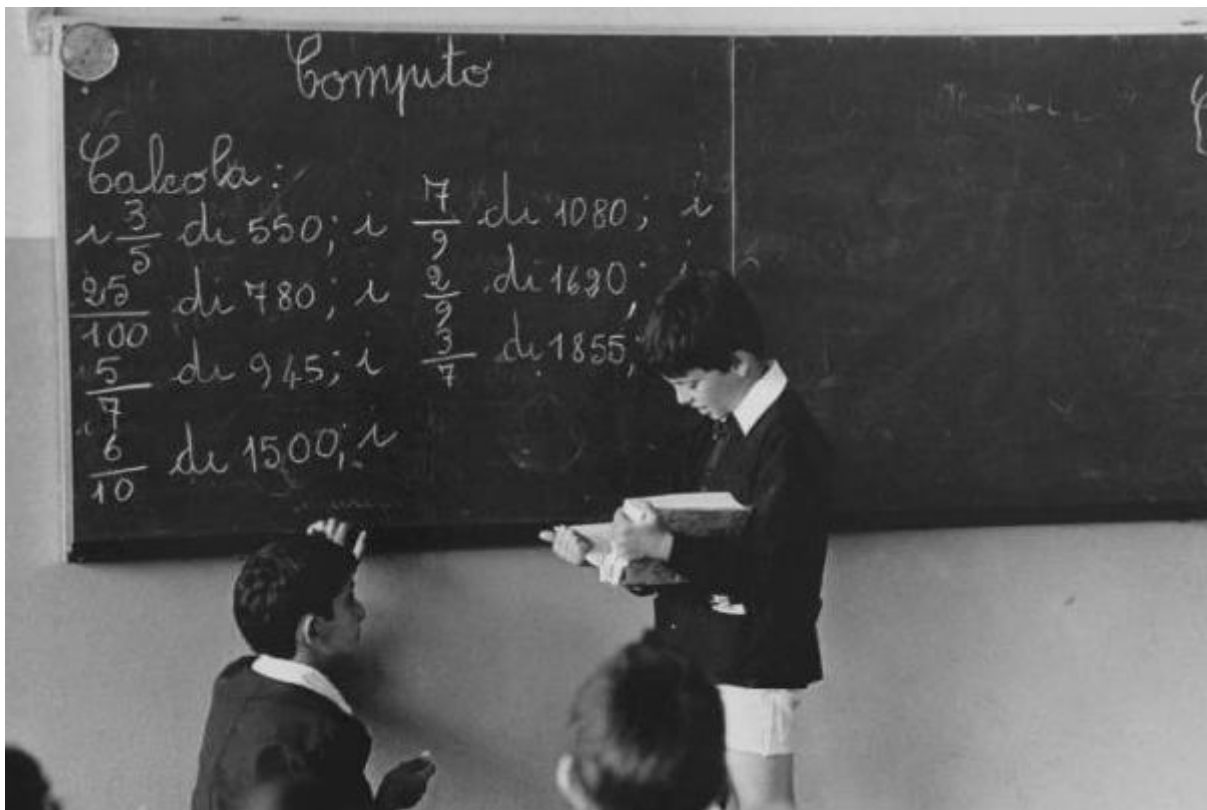 Computo
Calcola:
i 3/5 di 550; i 7/9 di 1080; i
25/100 di 780; i 2/9 di 1620; i
5/7 di 945; i 3/7 di 1855;
6/10 di 1500; i